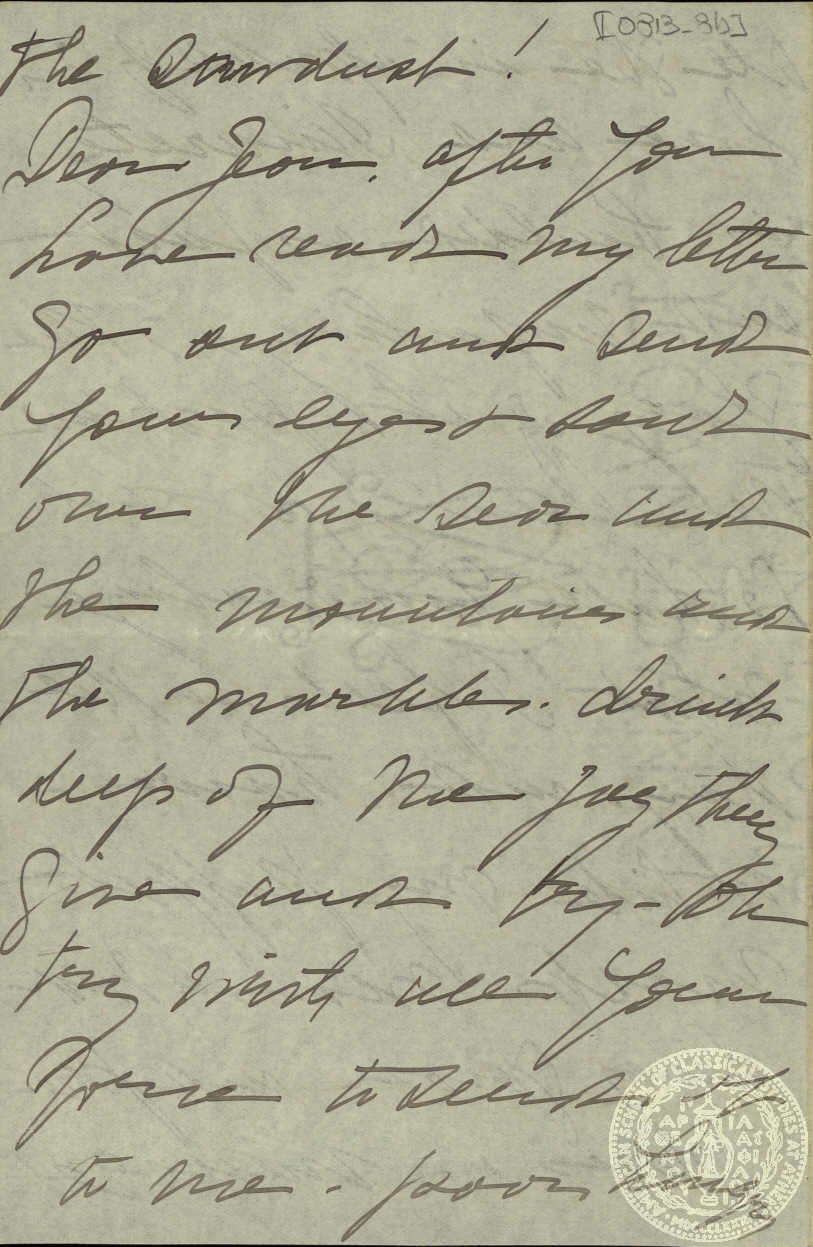 [0313-3b]
the Sawdust!
Dear Jean, after you
have read my letter
go out and send
your eyes & soul
over the sea and
the mountains and
the marbles. drink
deep of the joy they
give and try - Oh
try with all your
force to send it
to me - poor
AMERICAN SCHOOL OF CLASSICAL STUDIES AT ATHENS